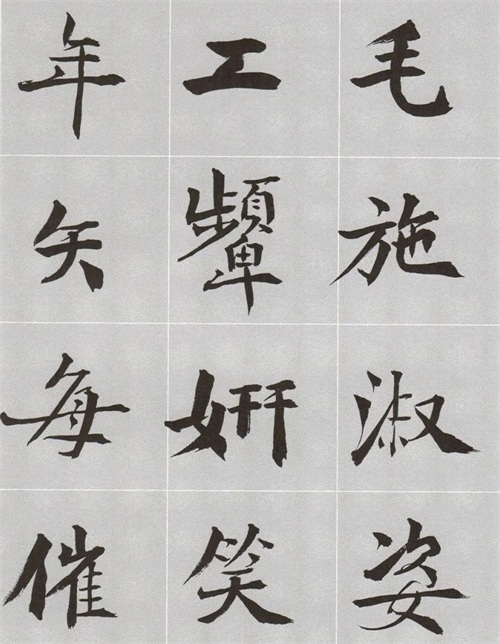 毛施淑姿
工顰姸笑
年矢每催